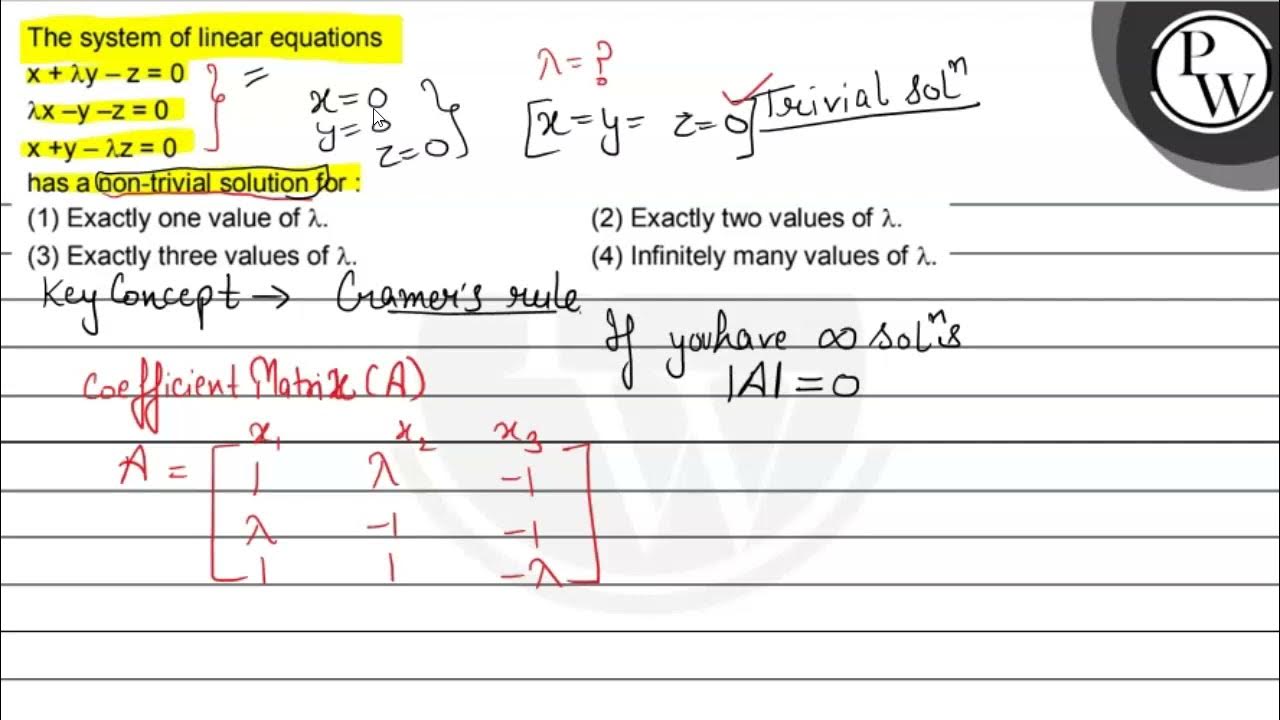 The system of linear equations
x + λy – z = 0
λx –y –z = 0
x +y – λz = 0
has a non-trivial solution for :
=
x=0
y=0
z=0
λ=?
[x=y= z=0] Trivial solⁿ
PW
(1) Exactly one value of λ.
(2) Exactly two values of λ.
(3) Exactly three values of λ.
(4) Infinitely many values of λ.
Key Concept → Cramer's rule
If you have ∞ solⁿs
|A| = 0
Coefficient Matrix (A)
x₁ x₂ x₃
A = 1 λ -1
λ -1 -1
1 1 -λ